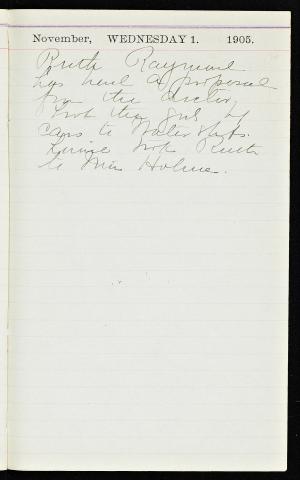 November, WEDNESDAY 1. 1905.
Ruth Raymond
has had a proposal
from the doctor
Took the girls by
cars to
Took Ruth
to Mrs Holmes.